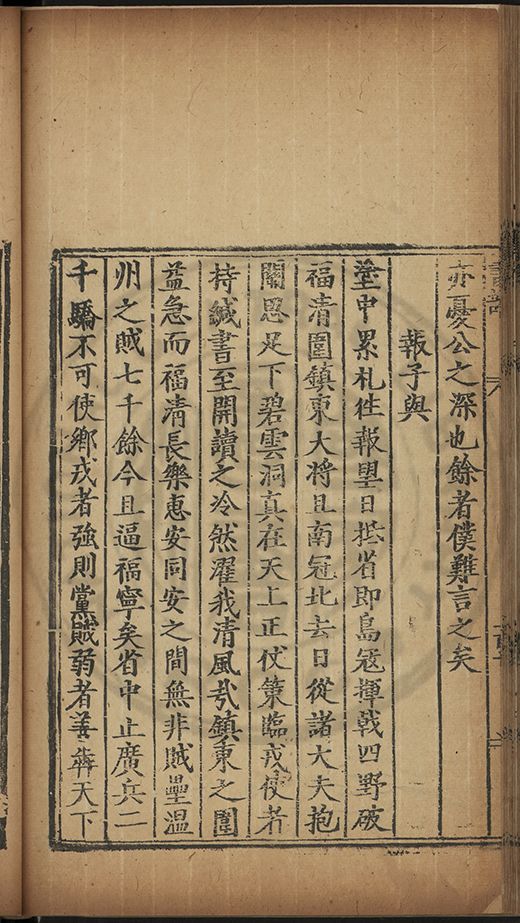 亦憂公之深也餘者僕難言之矣
報子與
塗中累札徃報朢日抵省即島寇揮戟四野破
福清圍鎮東大將且南冠北去日從諸大夫抱
關思足下碧雲洞真在天上正仗策臨戎使者
持緘書至開讀之泠然濯我清風㢤鎮東之圍
益急而福清長樂惠安同安之間無非賊壘溫
州之賊七千餘今且逼福寧矣省中止廣兵二
千驕不可使鄉戎者強則黨賊弱者羙犇天下